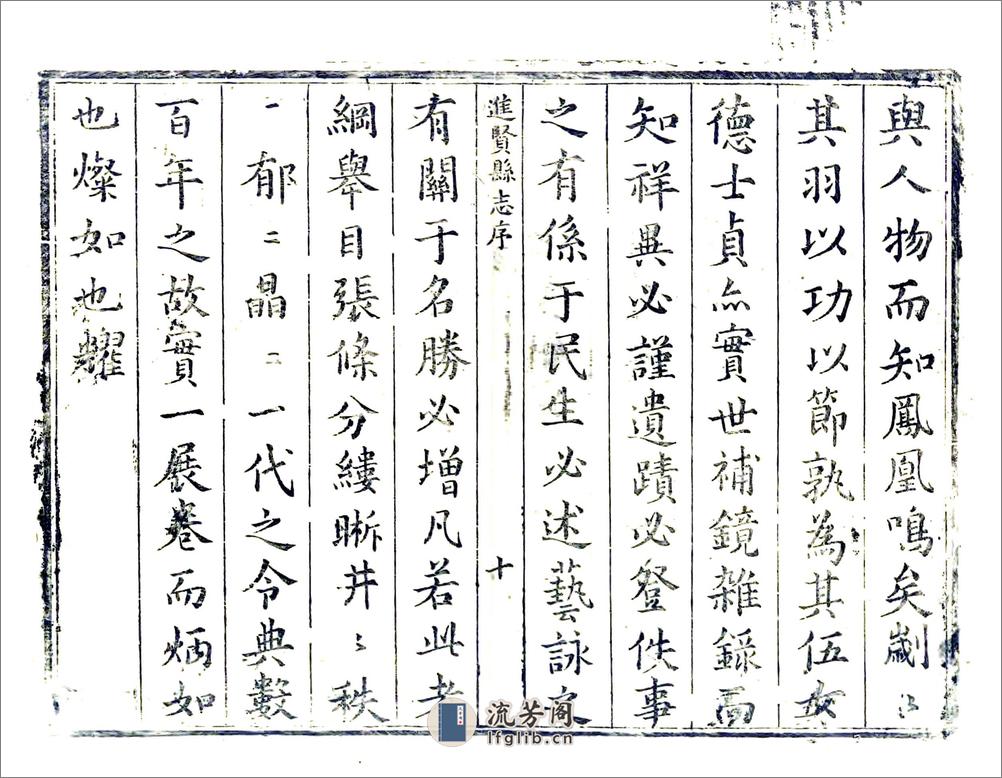 與人物而知鳳凰鳴矣劌〻
其羽以功以節孰為其伍女
德士貞亦實世補鏡雜錄而
知祥異必謹遺蹟必登佚事
之有係于民生必述藝詠
進賢縣志序 十
有關于名勝必增凡若此者
綱舉目張條分縷晰井〻秩
〻郁〻晶〻一代之令典數
百年之故實一展卷而炳如
也燦如也耀
流芳阁
lfglib.cn